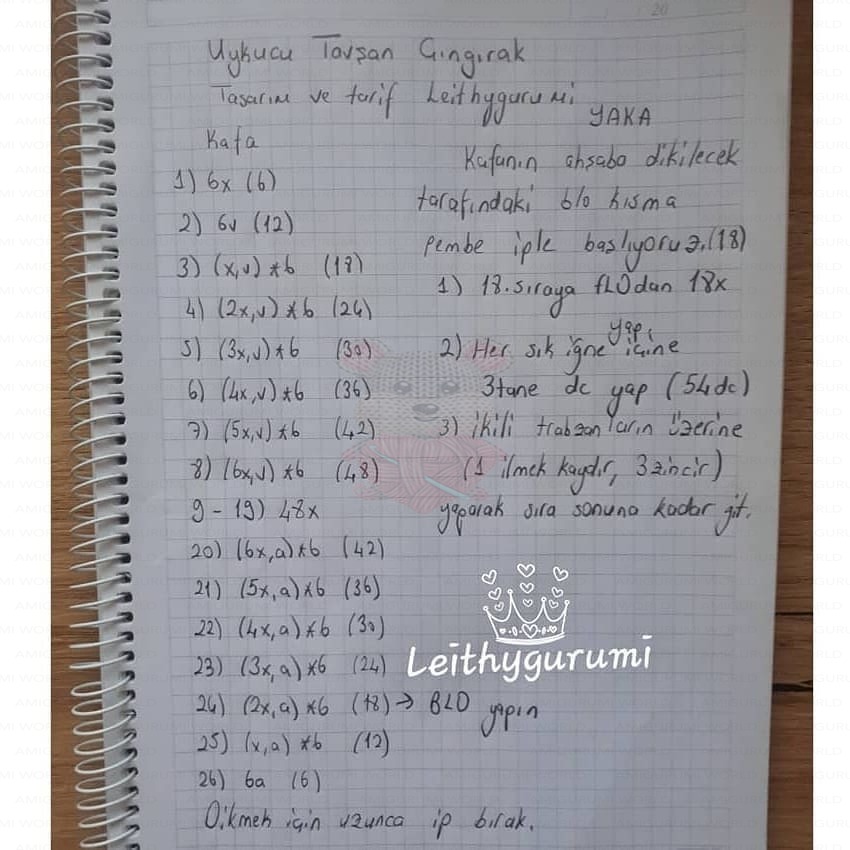 Uykucu Tavşan Çıngırak
Tasarım ve tarif Leithygurumi
Kafa
1) 6x (6)
2) 6v (12)
3) (x,v)*6 (18)
4) (2x,v)*6 (24)
5) (3x,v)*6 (30)
6) (4x,v)*6 (36)
7) (5x,v)*6 (42)
8) (6x,v)*6 (48)
9 - 19) 48x
20) (6x,a)*6 (42)
21) (5x,a)*6 (36)
22) (4x,a)*6 (30)
23) (3x,a)*6 (24)
24) (2x,a)*6 (18)→ BLO yapın
25) (x,a)*6 (12)
26) 6a (6)
Dikmek için uzunca ip bırak.
YAKA
Kafanın ahşaba dikilecek
tarafındaki blo kısma
pembe iple başlıyoruz.(18)
1) 18.sıraya FLO dan 18x
yap.
2) Her sık iğne içine
3tane dc yap (54dc)
3) ikili trabzanların üzerine
(1 ilmek kaydır, 3 zincir)
yaparak sıra sonuna kadar git.
Leithygurumi